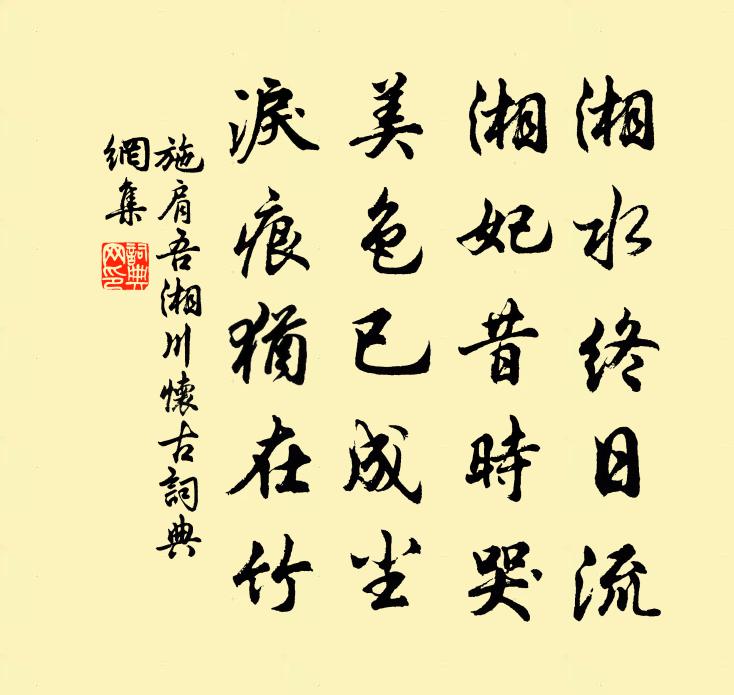 湘水終日流
湘妃昔時哭
美色已成尘
淚痕猶在竹
施肩吾湘川懷古詞典
網集
詞典
网印